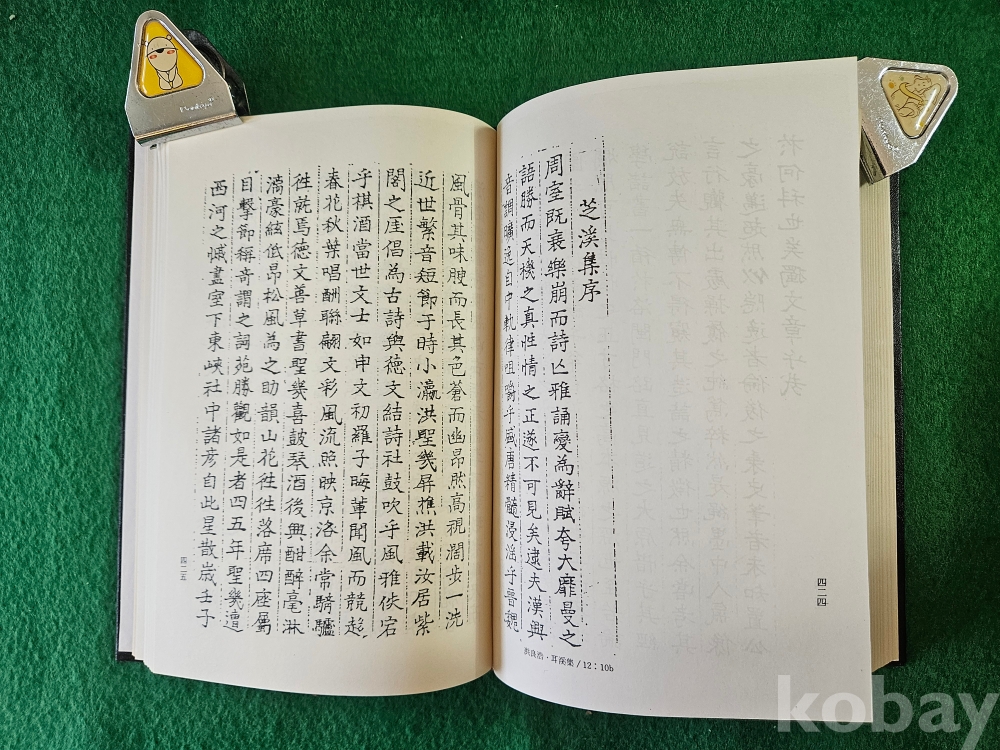 芝溪集序
周室既衰樂崩而詩亡雅誦變為辭賦夸大靡曼之
語勝而天機之真性情之正遂不可見矣逮夫漢興
音調曠远自中軌律咀嚼乎盛唐精髓浸淫乎魯魏
洪良浩·耳溪集/12:10b
四二四
風骨其味腴而長其色蒼而幽昂然高視濶步一洗
近世繁音短節于時小瀛洪聖幾屏樵洪載汝居紫
閣之厓倡為古詩與德文結詩社鼓吹乎風雅佚宕
乎棋酒當世文士如申文初羅子晦軰聞風而競趍
春花秋葉唱酬聯翩文彩風流照映京洛余常騎驢
徃就焉德文善草書聖幾喜鼓琴酒後興酣醉毫淋
漓豪絃低昂松風為之助韻山花徃徃落席四座屬
目擊節稱奇謂之詞苑勝觀如是者四五年聖幾遭
西河之慽盡室下東峽社中諸彦自此星散歳壬子
四二五
kobay